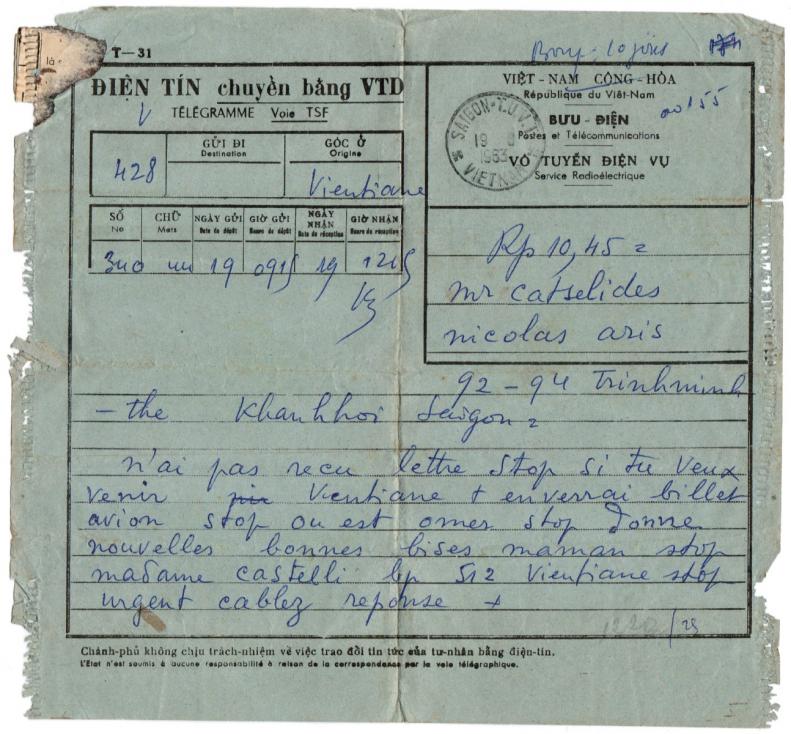 T-31
ĐIỆN TÍN chuyển bằng VTĐ
TÉLÉGRAMME Voie TSF
GỬI ĐI
Destination
GỐC Ở
Origine
428
Vientiane
SỐ
No
CHỮ
Mots
NGÀY GỬI
Date de dépôt
GIỜ GỬI
Heure de dépôt
NGÀY NHẬN
Date de réception
GIỜ NHẬN
Heure de réception
340 19 0915 19 1215
VIỆT-NAM CỘNG-HÒA
République du Viêt-Nam
BƯU-ĐIỆN
Postes et Télécommunications
VÔ TUYẾN ĐIỆN VỤ
Service Radioélectrique
SAIGON-T.U.V.T
19
1963
VIETNAM
00155
Rp 10,45 =
mr catselides
nicolas aris
92-94 Trinhminh
-the Khanhhoi Saigon =
n'ai pas recu lettre stop si tu veux
venir Vientiane + enverrai billet
avion stop ou est omer stop donne
nouvelles bonnes bises maman stop
madame castelli bp 512 Vientiane stop
urgent cablez reponse +
1220/25
Chánh-phủ không chịu trách-nhiệm về việc trao đổi tin tức của tư-nhân bằng điện-tín.
L'État n'est soumis à aucune responsabilité à raison de la correspondance par la voie télégraphique.